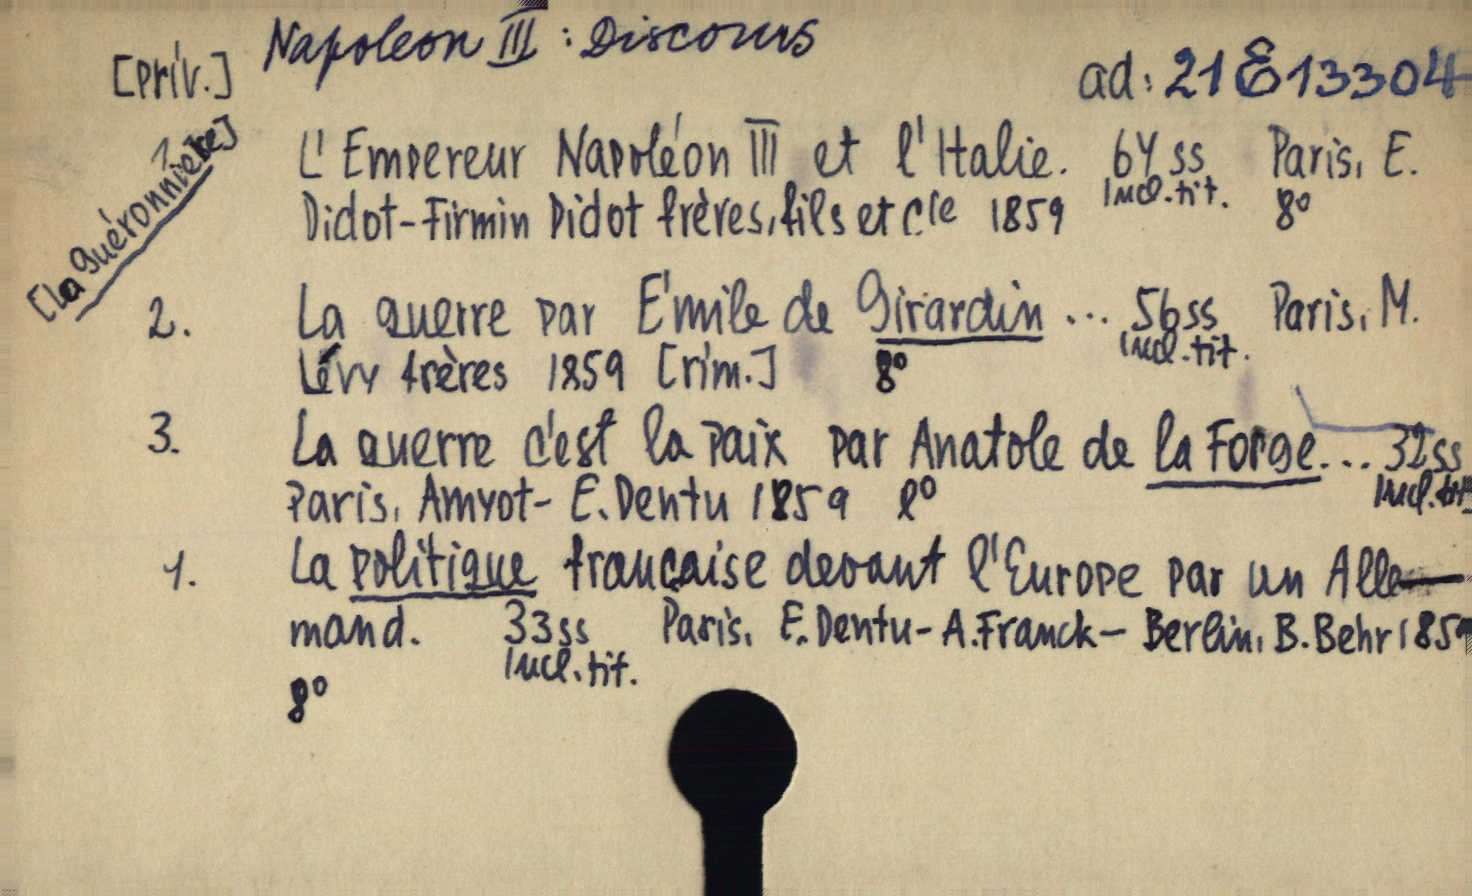 Napoleon III : Discours
[Priv.]
ad: 21 E 13304
[La Guéronnière]
1.
L'Empereur Napoléon III et l'Italie. 64 ss Paris, E.
incl. tit.
Didot-Firmin Didot frères, fils et Cie 1859 8º
2. La guerre par Émile de Girardin ... 56 ss Paris, M.
incl. tit.
Lévy frères 1859 [rim.] 8º
3. La guerre c'est la paix par Anatole de la Forge... 32 ss
incl. tit.
Paris, Amyot- E. Dentu 1859 8º
4. La politique française devant l'Europe par un Alle-
mand. 33 ss Paris, E. Dentu- A. Franck- Berlin, B. Behr 1859
incl. tit.
8º